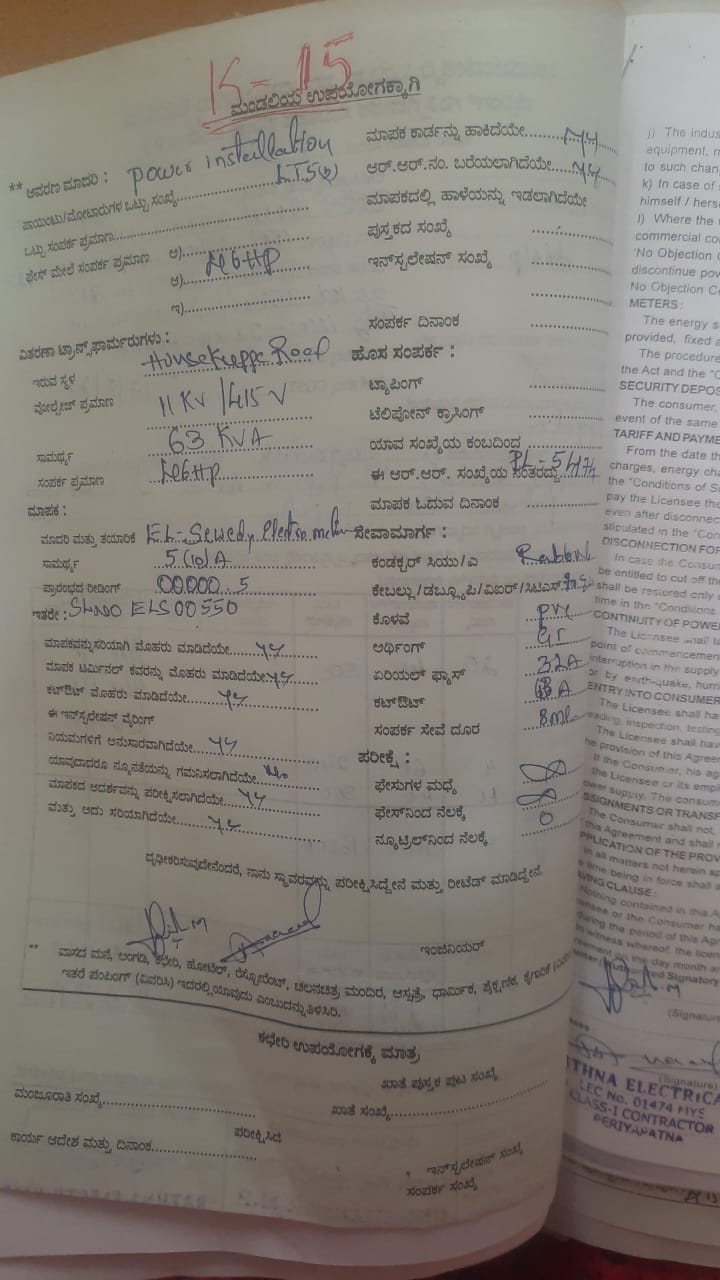 K-15
ಮಂಡಲಿಯ ಉಪಯೋಗಕ್ಕಾಗಿ
** ಆವರಣ ಮಾದರಿ : power installation
LT5(b)
ಪಾಯಿಂಟು/ಮೋಟಾರುಗಳ ಒಟ್ಟು ಸಂಖ್ಯೆ
ಒಟ್ಟು ಸಂಪರ್ಕ ಪ್ರಮಾಣ
ಫೇಸ್ ಮೇಲೆ ಸಂಪರ್ಕ ಪ್ರಮಾಣ ಅ)
ಆ)
ಇ)
ವಿತರಣಾ ಟ್ರಾನ್ಸ್‌ಫಾರ್ಮರುಗಳು :
ಇರುವ ಸ್ಥಳ
ವೋಲ್ಟೇಜ್ ಪ್ರಮಾಣ 11 KV / 415 V
ಸಾಮರ್ಥ್ಯ 63 KVA
ಸಂಪರ್ಕ ಪ್ರಮಾಣ
ಮಾಪಕ :
ಮಾದರಿ ಮತ್ತು ತಯಾರಿಕೆ EL-Sewedy Electro
ಸಾಮರ್ಥ್ಯ 5(10)A
ಪ್ರಾರಂಭದ ರೀಡಿಂಗ್ 00000.5
ಇತರೇ : SLNO ELS00550
ಮಾಪಕವನ್ನು ಸರಿಯಾಗಿ ಮೊಹರು ಮಾಡಿದೆಯೇ
ಮಾಪಕ ಟರ್ಮಿನಲ್ ಕವರನ್ನು ಮೊಹರು ಮಾಡಿದೆಯೇ
ಕಟ್‌ಔಟ್ ಮೊಹರು ಮಾಡಿದೆಯೇ
ಈ ಇನ್‌ಸ್ಟಲೇಷನ್ ವೈರಿಂಗ್
ನಿಯಮಗಳಿಗೆ ಅನುಸಾರವಾಗಿದೆಯೇ
ಯಾವುದಾದರೂ ನ್ಯೂನತೆಯನ್ನು ಗಮನಿಸಲಾಗಿದೆಯೇ No
ಮಾಪಕದ ಆದರ್ಶವನ್ನು ಪರೀಕ್ಷಿಸಲಾಗಿದೆಯೇ
ಮತ್ತು ಅದು ಸರಿಯಾಗಿದೆಯೇ
ಮಾಪಕ ಕಾರ್ಡನ್ನು ಹಾಕಿದೆಯೇ
ಆರ್.ಆರ್.ನಂ. ಬರೆಯಲಾಗಿದೆಯೇ
ಮಾಪಕದಲ್ಲಿ ಹಾಳೆಯನ್ನು ಇಡಲಾಗಿದೆಯೇ
ಪುಸ್ತಕದ ಸಂಖ್ಯೆ
ಇನ್‌ಸ್ಟಲೇಷನ್ ಸಂಖ್ಯೆ
ಸಂಪರ್ಕ ದಿನಾಂಕ
ಹೊಸ ಸಂಪರ್ಕ :
ಟ್ಯಾಪಿಂಗ್
ಟೆಲಿಫೋನ್ ಕ್ರಾಸಿಂಗ್
ಯಾವ ಸಂಖ್ಯೆಯ ಕಂಬದಿಂದ
ಈ ಆರ್.ಆರ್. ಸಂಖ್ಯೆಯ ನಂತರದ್ದು
ಮಾಪಕ ಓದುವ ದಿನಾಂಕ
ಸೇವಾಮಾರ್ಗ :
ಕಂಡಕ್ಟರ್ ಸಿಯು/ಎ
ಕೇಬಲ್ಲು/ಡಬ್ಲ್ಯೂಪಿ/ವಿಐರ್/ಸಿಟಿಎಸ್
ಕೊಳವೆ PVC
ಅರ್ಥಿಂಗ್ GI
ಏರಿಯಲ್ ಫ್ಯೂಸ್ 32A
ಕಟ್‌ಔಟ್
ಸಂಪರ್ಕ ಸೇವೆ ದೂರ
ಪರೀಕ್ಷೆ :
ಫೇಸುಗಳ ಮಧ್ಯೆ
ಫೇಸ್‌ನಿಂದ ನೆಲಕ್ಕೆ
ನ್ಯೂಟ್ರಲ್‌ನಿಂದ ನೆಲಕ್ಕೆ 0
ದೃಢೀಕರಿಸುವುದೇನೆಂದರೆ, ನಾನು ಸ್ಥಾವರವನ್ನು ಪರೀಕ್ಷಿಸಿದ್ದೇನೆ ಮತ್ತು ರೀಟೆಡ್ ಮಾಡಿದ್ದೇನೆ
ಇಂಜಿನಿಯರ್
** ವಾಸದ ಮನೆ, ಅಂಗಡಿ, ಕಛೇರಿ, ಹೋಟೆಲ್, ರೆಸ್ಟೋರೆಂಟ್, ಚಲನಚಿತ್ರ ಮಂದಿರ, ಆಸ್ಪತ್ರೆ, ಧಾರ್ಮಿಕ, ಶೈಕ್ಷಣಿಕ, ಕೈಗಾರಿಕೆ
ಇತರೆ ಪಂಪಿಂಗ್ (ವಿವರಿಸಿ) ಇದರಲ್ಲಿ ಯಾವುದು ಎಂಬುದನ್ನು ತಿಳಿಸಿರಿ.
ಕಛೇರಿ ಉಪಯೋಗಕ್ಕೆ ಮಾತ್ರ
ಮಂಜೂರಾತಿ ಸಂಖ್ಯೆ
ಖಾತೆ ಪುಸ್ತಕ ಪುಟ ಸಂಖ್ಯೆ
ಖಾತೆ ಸಂಖ್ಯೆ
ಪರೀಕ್ಷಿಸಿದ
ಕಾರ್ಯ ಆದೇಶ ಮತ್ತು ದಿನಾಂಕ
ಇನ್‌ಸ್ಟಲೇಷನ್ ಸಂಖ್ಯೆ
ಸಂಪರ್ಕ ಸಂಖ್ಯೆ
j) The indus
equipment, m
to such chan
k) In case of
himself / hers
l) Where the
commercial co
'No Objection C
discontinue pov
No Objection Ce
METERS :
The energy s
provided, fixed a
The procedure
the Act and the "C
SECURITY DEPOS
The consumer,
event of the same
TARIFF AND PAYME
From the date th
charges, energy cha
the "Conditions of S
pay the Licensee the
even after disconnec
stipulated in the "Con
DISCONNECTION FOR
In case the Consu
be entitled to cut off the
shall be restored only c
time in the "Conditions
CONTINUITY OF POWER
The Licensee shall ta
point of commencemen
interruption in the supply
or by earth-quake, hurri
ENTRY INTO CONSUMER
The Licensee shall hav
eading, inspection, testing
The Licensee shall have
he provision of this Agreer
If the Consumer, his ag
the Licensee or its empl
ower supply. The consume
SSIGNMENTS OR TRANSF
The Consumer shall not,
this Agreement and shall r
PPLICATION OF THE PROV
in all matters not herein sp
e time being in force shall a
VING CLAUSE :
Nothing contained in this A
ensee or the Consumer ha
during the period of this Ag
n witness whereof, the licen
reement on the day month a
Signatory
(Signature
(Signature)
THNA ELECTRICA
LEC No. 01474 MYS
CLASS-I CONTRACTOR
PERIYAPATNA